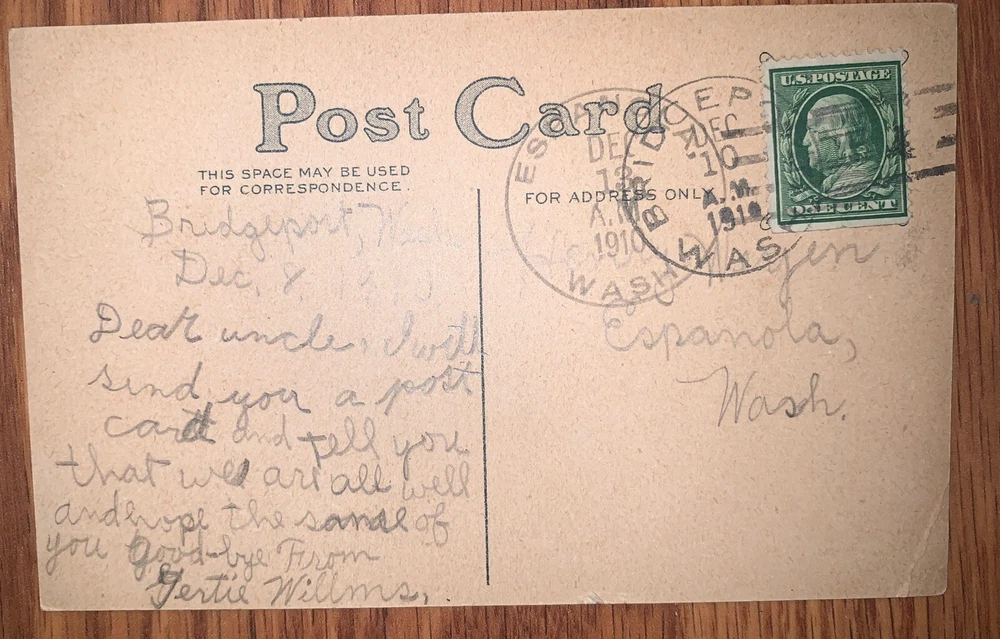 Post Card
THIS SPACE MAY BE USED
FOR CORRESPONDENCE.
FOR ADDRESS ONLY
U.S. POSTAGE
ONE CENT
DEC
A.M.
1910
WASH
BRIDGEPORT
DEC
10
A.M.
1910
WASH
Bridgeport, Wash
Dec. 8,
Dear uncle, I will
send you a post
card and tell you
that we are all well
and hope the same of
you Good-bye From
Gertie Willms,
Espanola,
Wash.